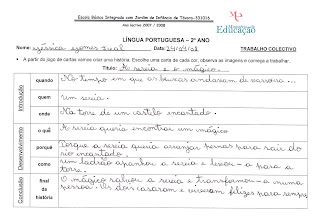 Escola Básica Integrada com Jardim de Infância de Távora-331036
Ano lectivo 2007 / 2008
Educação
LÍNGUA PORTUGUESA – 2º ANO
Nome: Jéssica Gomes Leal Data: 24/04/08 TRABALHO COLECTIVO
A partir do jogo de cartas vamos criar uma história. Escolhe uma carta de cada cor, observa as imagens e começa a trabalhar.
Título: A sereia e o mágico.
Introdução
quando
No tempo em que as bruxas andavam de vassoura ...
quem
Um sereia.
onde
Na torre de um castelo encantado.
Desenvolvimento
o quê
A sereia queria encontrar um mágico
porquê
Porque a sereia queria arranjar pernas para sair do
rio encantado.
como
Um ladrão apanhou a sereia e levou-a para a
torre.
Conclusão
final
da
história
O mágico salvou a sereia e transformou-a numa
pessoa. Os dois casaram e viveram felizes para sempre